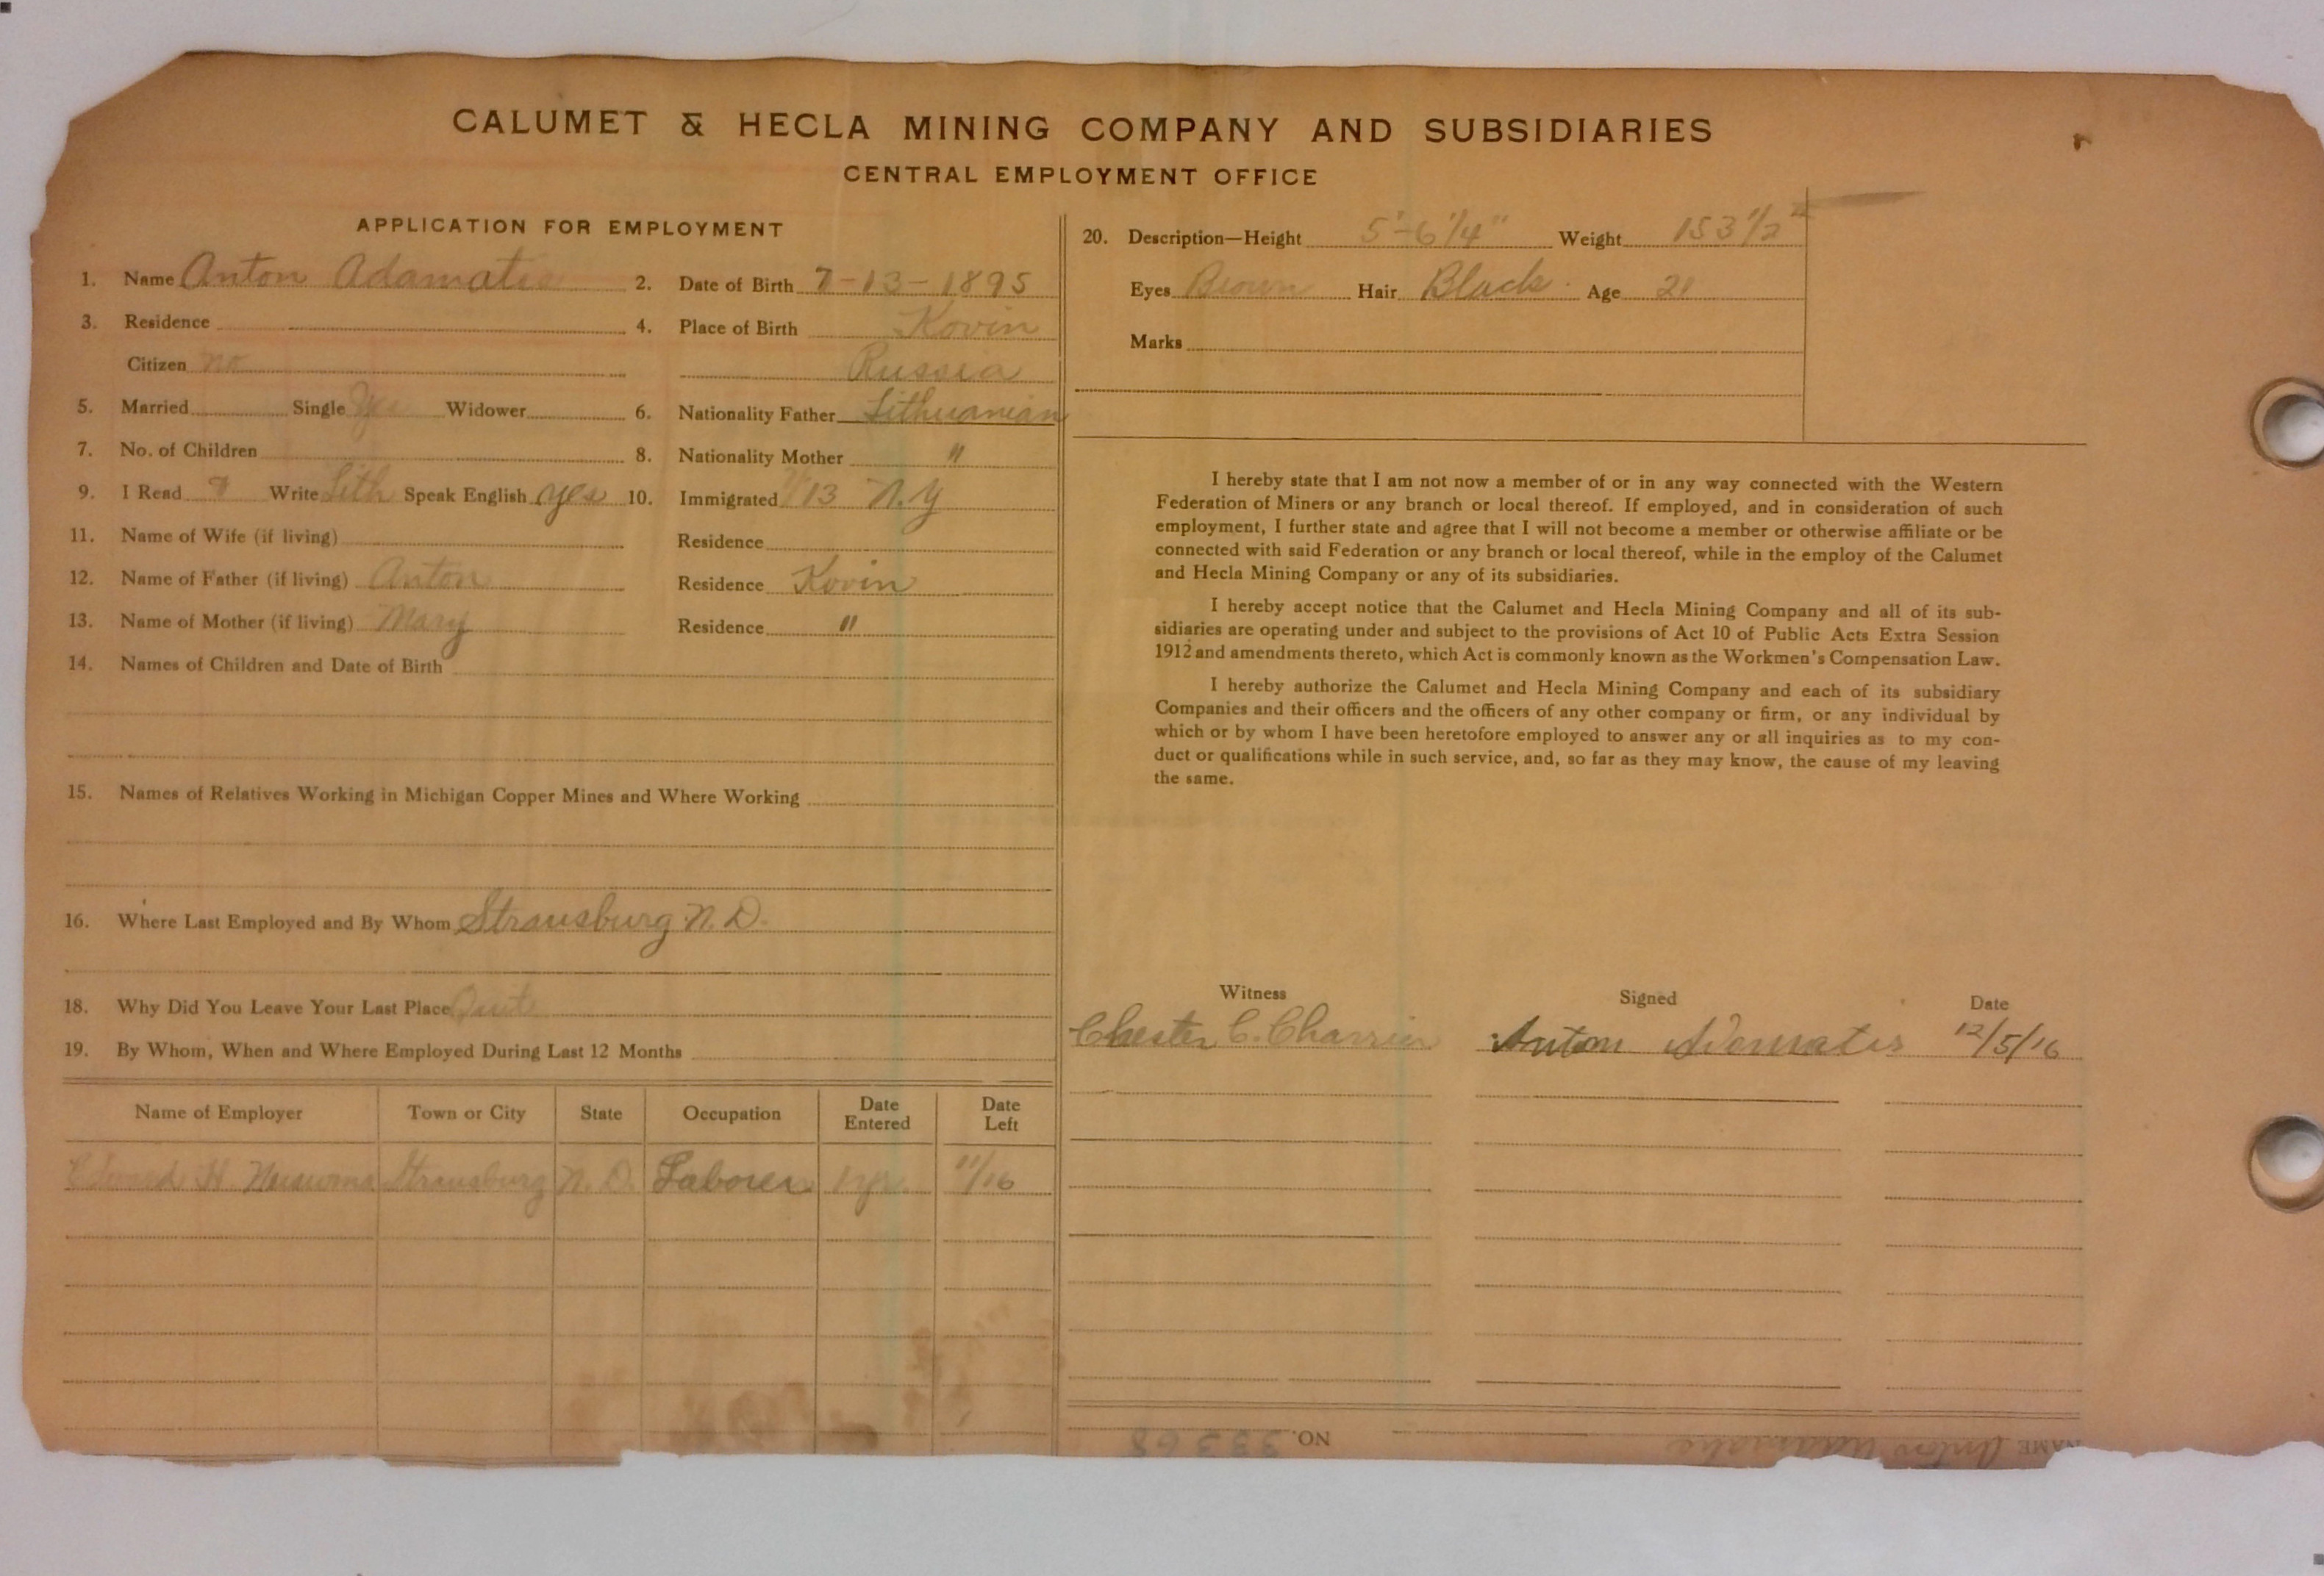 CALUMET & HECLA MINING COMPANY AND SUBSIDIARIES
CENTRAL EMPLOYMENT OFFICE
APPLICATION FOR EMPLOYMENT
1. Name Anton Adamatis 2. Date of Birth 7-13-1895
3. Residence 4. Place of Birth Kovin
Citizen no Russia
5. Married Single Yes Widower 6. Nationality Father Lithuanian
7. No. of Children 8. Nationality Mother "
9. I Read & Write Lith Speak English yes 10. Immigrated 13 N.Y
11. Name of Wife (if living) Residence
12. Name of Father (if living) Anton Residence Kovin
13. Name of Mother (if living) Mary Residence "
14. Names of Children and Date of Birth
15. Names of Relatives Working in Michigan Copper Mines and Where Working
16. Where Last Employed and By Whom Strausburg N.D.
18. Why Did You Leave Your Last Place Quit
19. By Whom, When and Where Employed During Last 12 Months
Name of Employer Town or City State Occupation Date Entered Date Left
H. Strausburg N.D. Laborer 1 yr. 11/16
20. Description—Height 5'-6 1/4" Weight 153 1/2
Eyes Brown Hair Black Age 21
Marks
I hereby state that I am not now a member of or in any way connected with the Western
Federation of Miners or any branch or local thereof. If employed, and in consideration of such
employment, I further state and agree that I will not become a member or otherwise affiliate or be
connected with said Federation or any branch or local thereof, while in the employ of the Calumet
and Hecla Mining Company or any of its subsidiaries.
I hereby accept notice that the Calumet and Hecla Mining Company and all of its sub-
sidiaries are operating under and subject to the provisions of Act 10 of Public Acts Extra Session
1912 and amendments thereto, which Act is commonly known as the Workmen's Compensation Law.
I hereby authorize the Calumet and Hecla Mining Company and each of its subsidiary
Companies and their officers and the officers of any other company or firm, or any individual by
which or by whom I have been heretofore employed to answer any or all inquiries as to my con-
duct or qualifications while in such service, and, so far as they may know, the cause of my leaving
the same.
Witness Signed Date
Chester C. Charrier Anton Adomatis 12/5/16
NAME Anton Adamatis NO. 33368